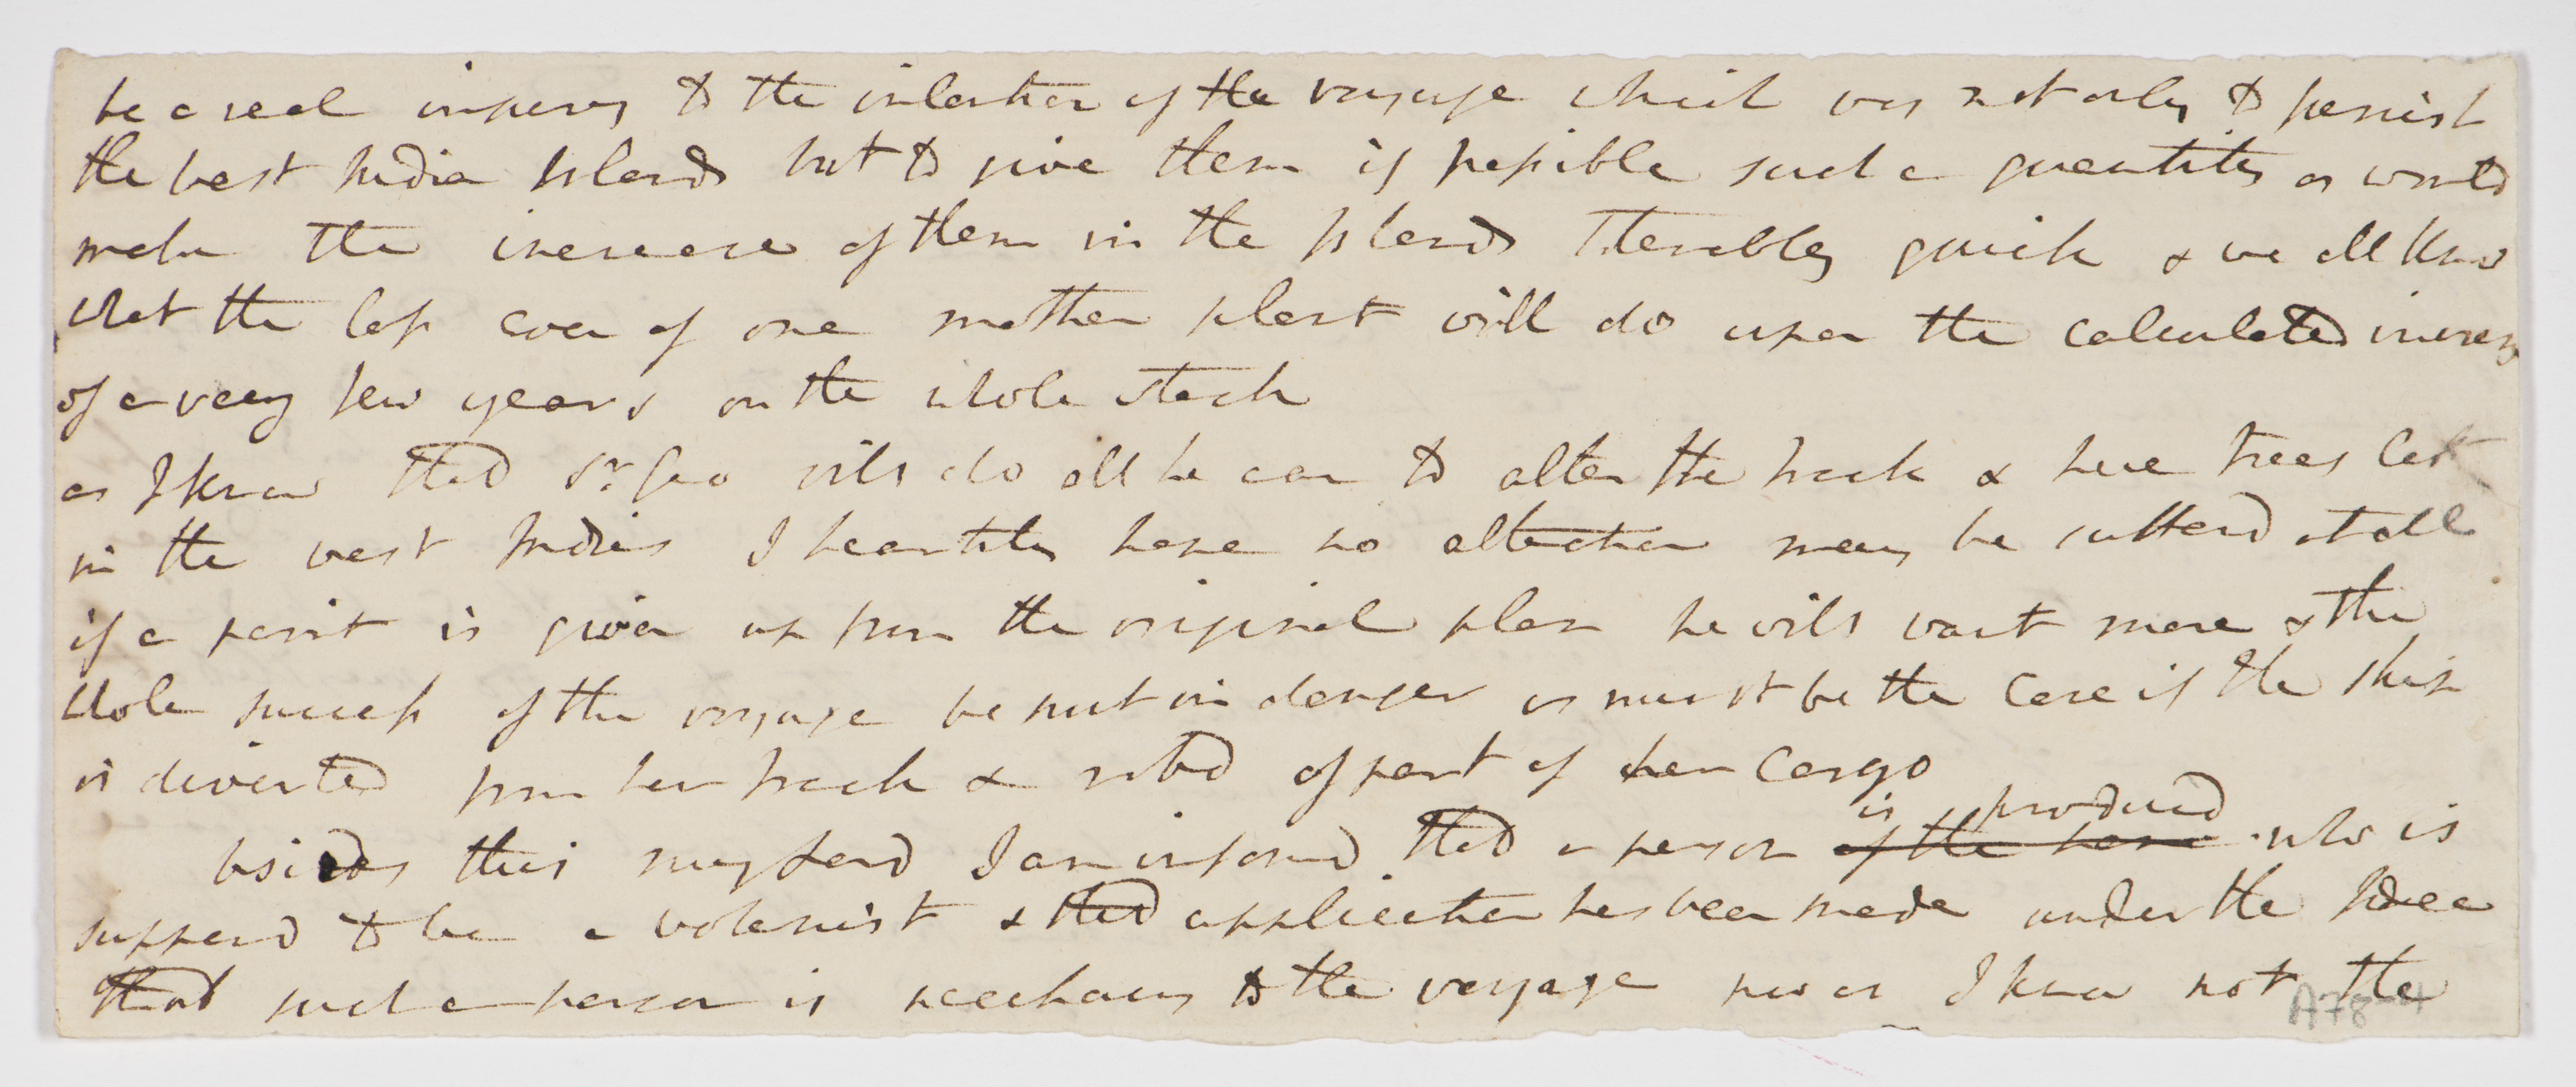 be a real injury to the intention of the voyage which was not only to furnish
the west India Islands but to give them if possible such a quantity as would
make the increase of them in the Islands Tolerably quick & we all know
what the loss even of one mother plant will do upon the calculated increase
of a very few years on the whole stock
as I know that Sr. Geo will do all he can to alter the track & have trees left
in the west Indies I heartily hope no alteration may be sufferd at all
if a point is given up from the original plan he will want more & the
whole success of the voyage be put in danger as must be the Case if the ship
is diverted from her track & robd of part of her Cargo
is producd
besides this my Lord I am informd that a person of the name who is
supposd to be a botanist & that application has been made under the Idea
that such a person is necessary to the voyage now as I know not the
A78-4